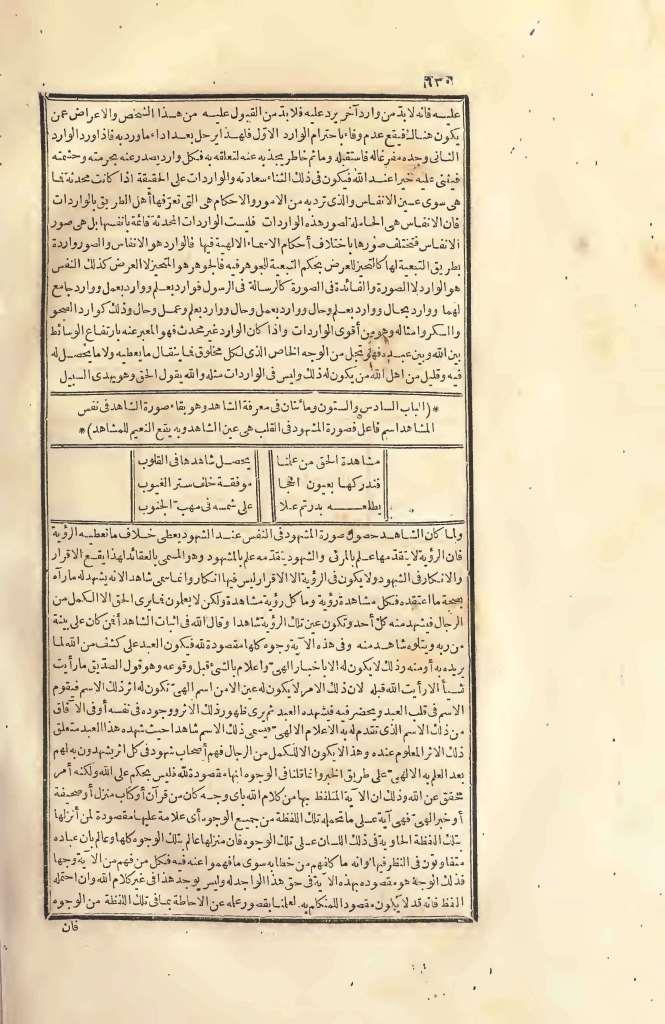 ٩٣٥
عليه فانه لا بدّ من وارد آخر يرد عليه فلا بدّ من القبول عليه من هذا الشخص والاعراض عمن
يكون هنالك فيقع عدم وفاء باحترام الوارد الاوّل فلهذا يرحل بعد اداء ما ورد به فاذا ورد الوارد
الثانى وحده مفرغاله فاستقبله وما تم خاطر يجذبه عنه لتعلقه به فكل وارد يصدر عنه بحرمته وحشمته
فيثنى عليه خيرا عند الله فيكون فى ذلك الثناء سعادته والواردات على الحقيقة اذا كانت محدثة فما
هى سوى عين الانفاس والذى ترد به من الامور والاحكام هى التى تعرّفها أهل الطريق بالواردات
فان الانفاس هى الحاملة لصور هذه الواردات فليست الواردات المحدثة قائمة بأنفسها بل هى صور
الانفاس فتختلف صورها باختلاف أحكام الاسماء الالهية فيها فالوارد هو الانفاس والصور واردة
بطريق التبعية لها كالتحيز للعرض بحكم التبعية للجوهر فيه فالجوهر هو المتحيز لا العرض كذلك النفس
هو الوارد لا الصورة والفائدة فى الصورة كالرسالة فى الرسول فوارد بعلم ووارد بعمل ووارد جامع
لهما ووارد بحال ووارد بعلم وحال ووارد بعمل وحال ووارد بعلم وعمل وحال وذلك كوارد الصحو
والسكر وامثاله وهو من أقوى الواردات واذا كان الوارد غير محدث فهو المعبر عنه بارتفاع الوسائط
بين الله وبين عبده فهو تجل من الوجه الخاص الذى لكل مخلوق فما ينقال ما يعطيه ولا ما يحصل له
فيه وقليل من اهل الله من يكون له ذلك وليس فى الواردات مثله والله يقول الحق وهو يهدى السبيل
*(الباب السادس والستون ومائتان فى معرفة الشاهد وهو بقاء صورة الشاهد فى نفس
المشاهد اسم فاعل فصورة المشهود فى القلب هى عين الشاهد وبه يقع النعيم للمشاهد)*
مشاهدة الحق من علمنا يحصل شاهدها فى القلوب
فندركها بعيون الحجا موفقة خلف ستر الغيوب
يطلعه بدرتم علا على شمسه فى مهب الجنوب
ولما كان الشاهد حصول صورة المشهود فى النفس عند الشهود يعطى خلاف ما تعطيه الرؤية
فان الرؤية لا يتقدّمها علم بالمرئى والشهود يتقدّمه علم بالمشهود وهو المسمى بالعقائد لهذا يقع الاقرار
والانكار فى الشهود ولا يكون فى الرؤية الا الاقرار ليس فيها انكار وانما سمى شاهدا لانه يشهد له ما رآه
بصحة ما اعتقده فكل مشاهدة رؤية وما كل رؤية مشاهدة ولكن لا يعلمون فما يرى الحق الا الكمل من
الرجال فيشهد منه كل أحد وتكون عين تلك الرؤية شاهدا وقال الله فى اثبات الشاهد أفمن كان على بينة
من ربه ويتلوه شاهد منه وفى هذه الآية وجوه كلها مقصودة لله فيكون العبد على كشف من الله لما
يريده به أو منه وذلك لا يكون له الا باخبار الهى واعلام بالشئ قبل وقوعه وهو قول الصدّيق ما رأيت
شيأ الا رأيت الله قبله لان ذلك الامر لا يكون له عين الا من اسم الهى تكون له اثر ذلك الاسم فيقوم
الاسم فى قلب العبد ويحضر فيه فيشهده العبد ثم يرى ظهور ذلك الاثر ووجوده فى نفسه أو فى الآفاق
من ذلك الاسم الذى تقدم له به الاعلام الالهى فيسمى ذلك الاسم شاهدا حيث شهده هذا العبد متعلق
ذلك الاثر المعلوم عنده وهذا لا يكون الا للكمل من الرجال فهم أصحاب شهود فى كل اثر يشهدون به لهم
بعد العلم به الالهى على طريق الخبر وانما قلنا فى الوجوه انها مقصودة لله فليس بتحكم على الله ولكنه أمر
محقق عن الله وذلك ان الآية المتلفظ بها من كلام الله باى وجه كان من قرآن أو كتاب منزل أو صحيفة
أو خبر الهى فهى آية على ما تحمله تلك اللفظة من جميع الوجوه أى علامة عليها مقصودة لمن أنزلها
بتلك اللفظة الحاوية فى ذلك اللسان على تلك الوجوه فان منزلها عالم بتلك الوجوه كلها وعالم بان عباده
متفاوتون فى النظر فيها وانه ما كلفهم من خطابه سوى ما فهموا عنه فيه فكل من فهم من الآية وجها
فذلك الوجه هو مقصود بهذه الآية فى حق هذا الواجد له وليس يوجد هذا فى غير كلام الله وان احتمله
اللفظ فانه قد لا يكون مقصودا للمتكلم به لعلمنا بقصور علمه عن الاحاطة بما فى تلك اللفظة من الوجوه
فان